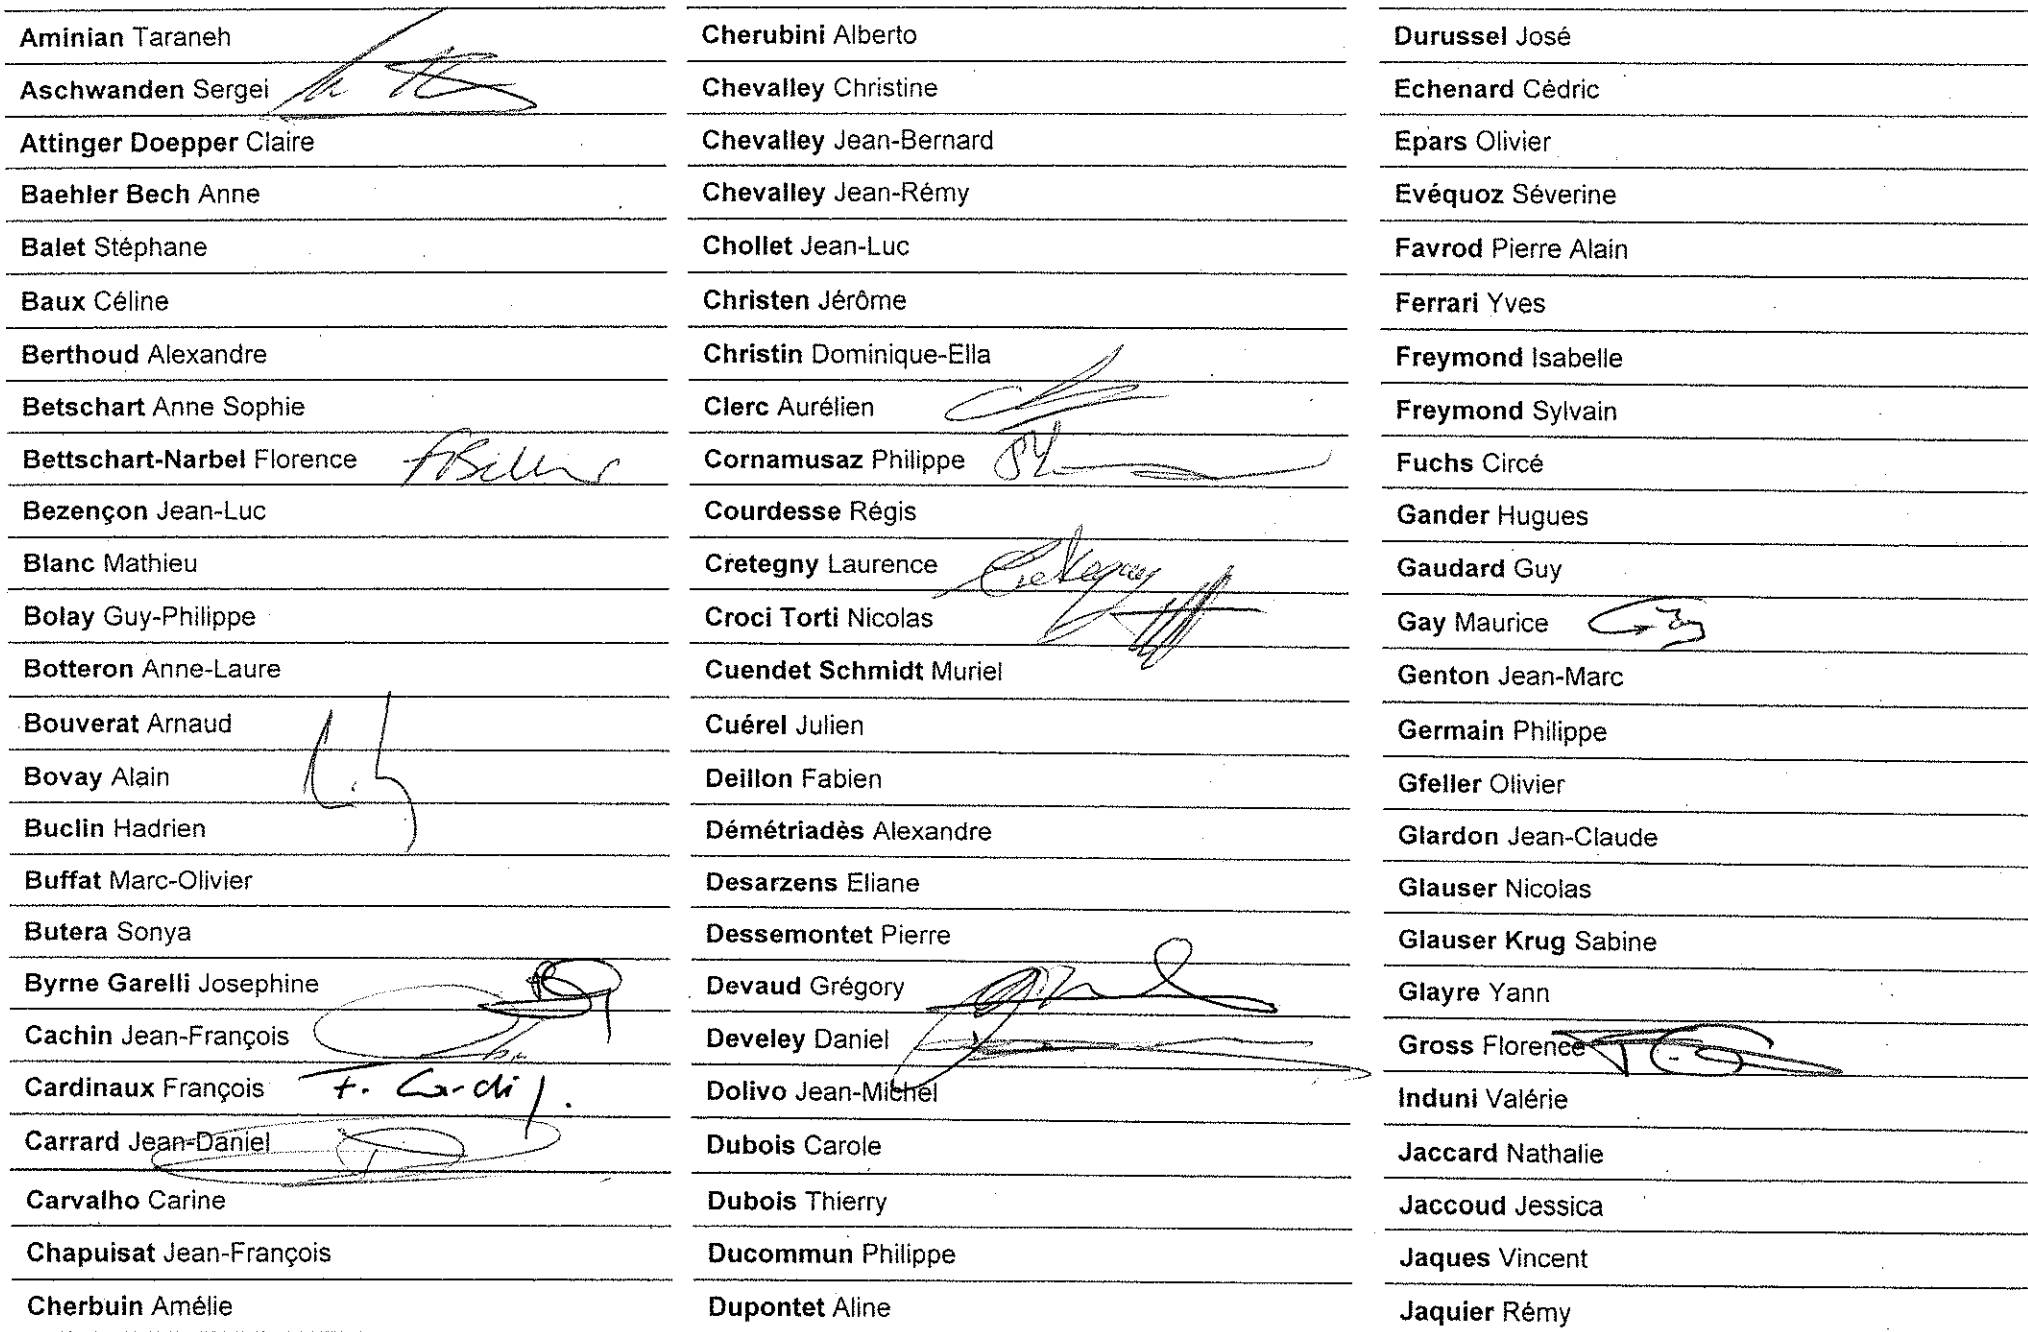 Aminian Taraneh
Aschwanden Sergei
Attinger Doepper Claire
Baehler Bech Anne
Balet Stéphane
Baux Céline
Berthoud Alexandre
Betschart Anne Sophie
Bettschart-Narbel Florence
Bezençon Jean-Luc
Blanc Mathieu
Bolay Guy-Philippe
Botteron Anne-Laure
Bouverat Arnaud
Bovay Alain
Buclin Hadrien
Buffat Marc-Olivier
Butera Sonya
Byrne Garelli Josephine
Cachin Jean-François
Cardinaux François
Carrard Jean-Daniel
Carvalho Carine
Chapuisat Jean-François
Cherbuin Amélie
Cherubini Alberto
Chevalley Christine
Chevalley Jean-Bernard
Chevalley Jean-Rémy
Chollet Jean-Luc
Christen Jérôme
Christin Dominique-Ella
Clerc Aurélien
Cornamusaz Philippe
Courdesse Régis
Cretegny Laurence Cretegny
Croci Torti Nicolas
Cuendet Schmidt Muriel
Cuérel Julien
Deillon Fabien
Démétriadès Alexandre
Desarzens Eliane
Dessemontet Pierre
Devaud Grégory
Develey Daniel
Dolivo Jean-Michel
Dubois Carole
Dubois Thierry
Ducommun Philippe
Dupontet Aline
Durussel José
Echenard Cédric
Epars Olivier
Evéquoz Séverine
Favrod Pierre Alain
Ferrari Yves
Freymond Isabelle
Freymond Sylvain
Fuchs Circé
Gander Hugues
Gaudard Guy
Gay Maurice
Genton Jean-Marc
Germain Philippe
Gfeller Olivier
Glardon Jean-Claude
Glauser Nicolas
Glauser Krug Sabine
Glayre Yann
Gross Florence
Induni Valérie
Jaccard Nathalie
Jaccoud Jessica
Jaques Vincent
Jaquier Rémy